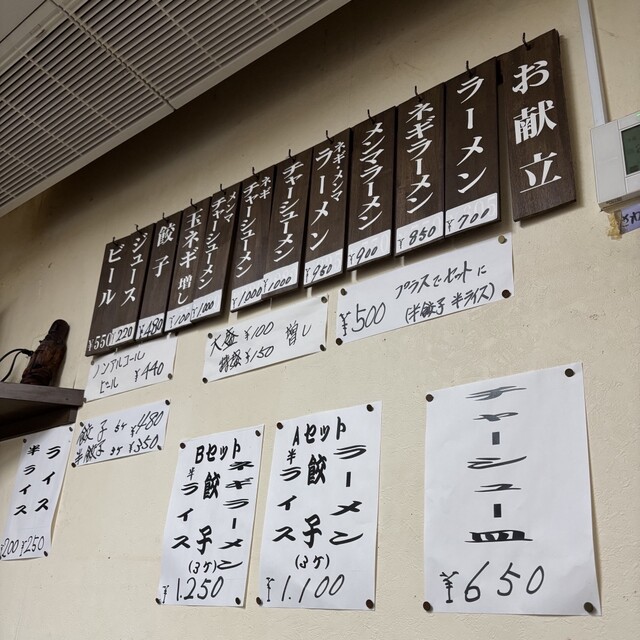 お献立
ラーメン
¥700
ネギラーメン
¥850
メンマラーメン
¥900
ネギ・メンマ
ラーメン
¥950
チャーシューメン
¥1000
ネギ
チャーシューメン
¥1000
メンマ
チャーシューメン
¥1000
玉ネギ増し
¥100
餃子
¥480
ジュース
¥220
ビール
¥550
¥500 プラスでセットに
(半餃子 半ライス)
大盛 ¥100 増し
特盛 ¥150
ノンアルコール
ビール ¥440
餃子 6ケ ¥480
半餃子 3ケ ¥350
ライス
¥250
半ライス
¥200
Bセット
ネギラーメン
餃子
(3ケ)
半ライス
¥1.250
Aセット
ラーメン
餃子
(3ケ)
半ライス
¥1.100
チャーシュー皿
¥650